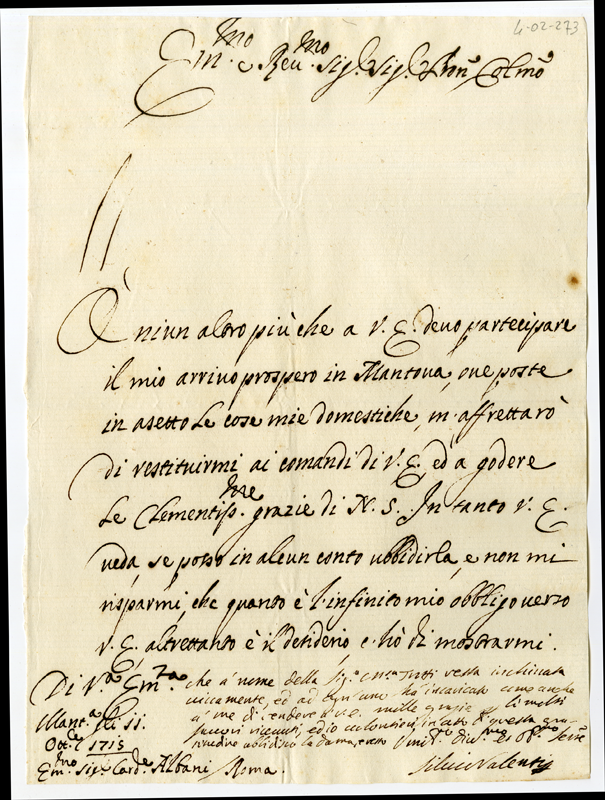 4-02-273
Em.mo e Rev.mo Sig.r Sig.r Pron.e Colmo
À niun altro più che a V. E. devo partecipare
il mio arrivo prospero in Mantova, ove poste
in asetto le cose mie domestiche, m'affrettarò
di restituirmi ai comandi di V. E. ed a godere
le Clementiss.me grazie di N. S. In tanto V. E.
veda, se posso in alcun conto ubbidirla, e non mi
risparmi, che quanto è l'infinito mio obbligo verso
V. E. altrettanto è il desiderio c'hò di mostrarmi.
Di V.a Em.za che a' nome della Sig.a resta inchinata
ed ad ogn'uno ha incaricato come anche
Mant.a li 11 a' me di rendere a V. E. mille grazie
favori ricevuti, ed io
Ott.e 1715
Em.mo Sig.r Card.e Albani Roma.
Silvio Valenti